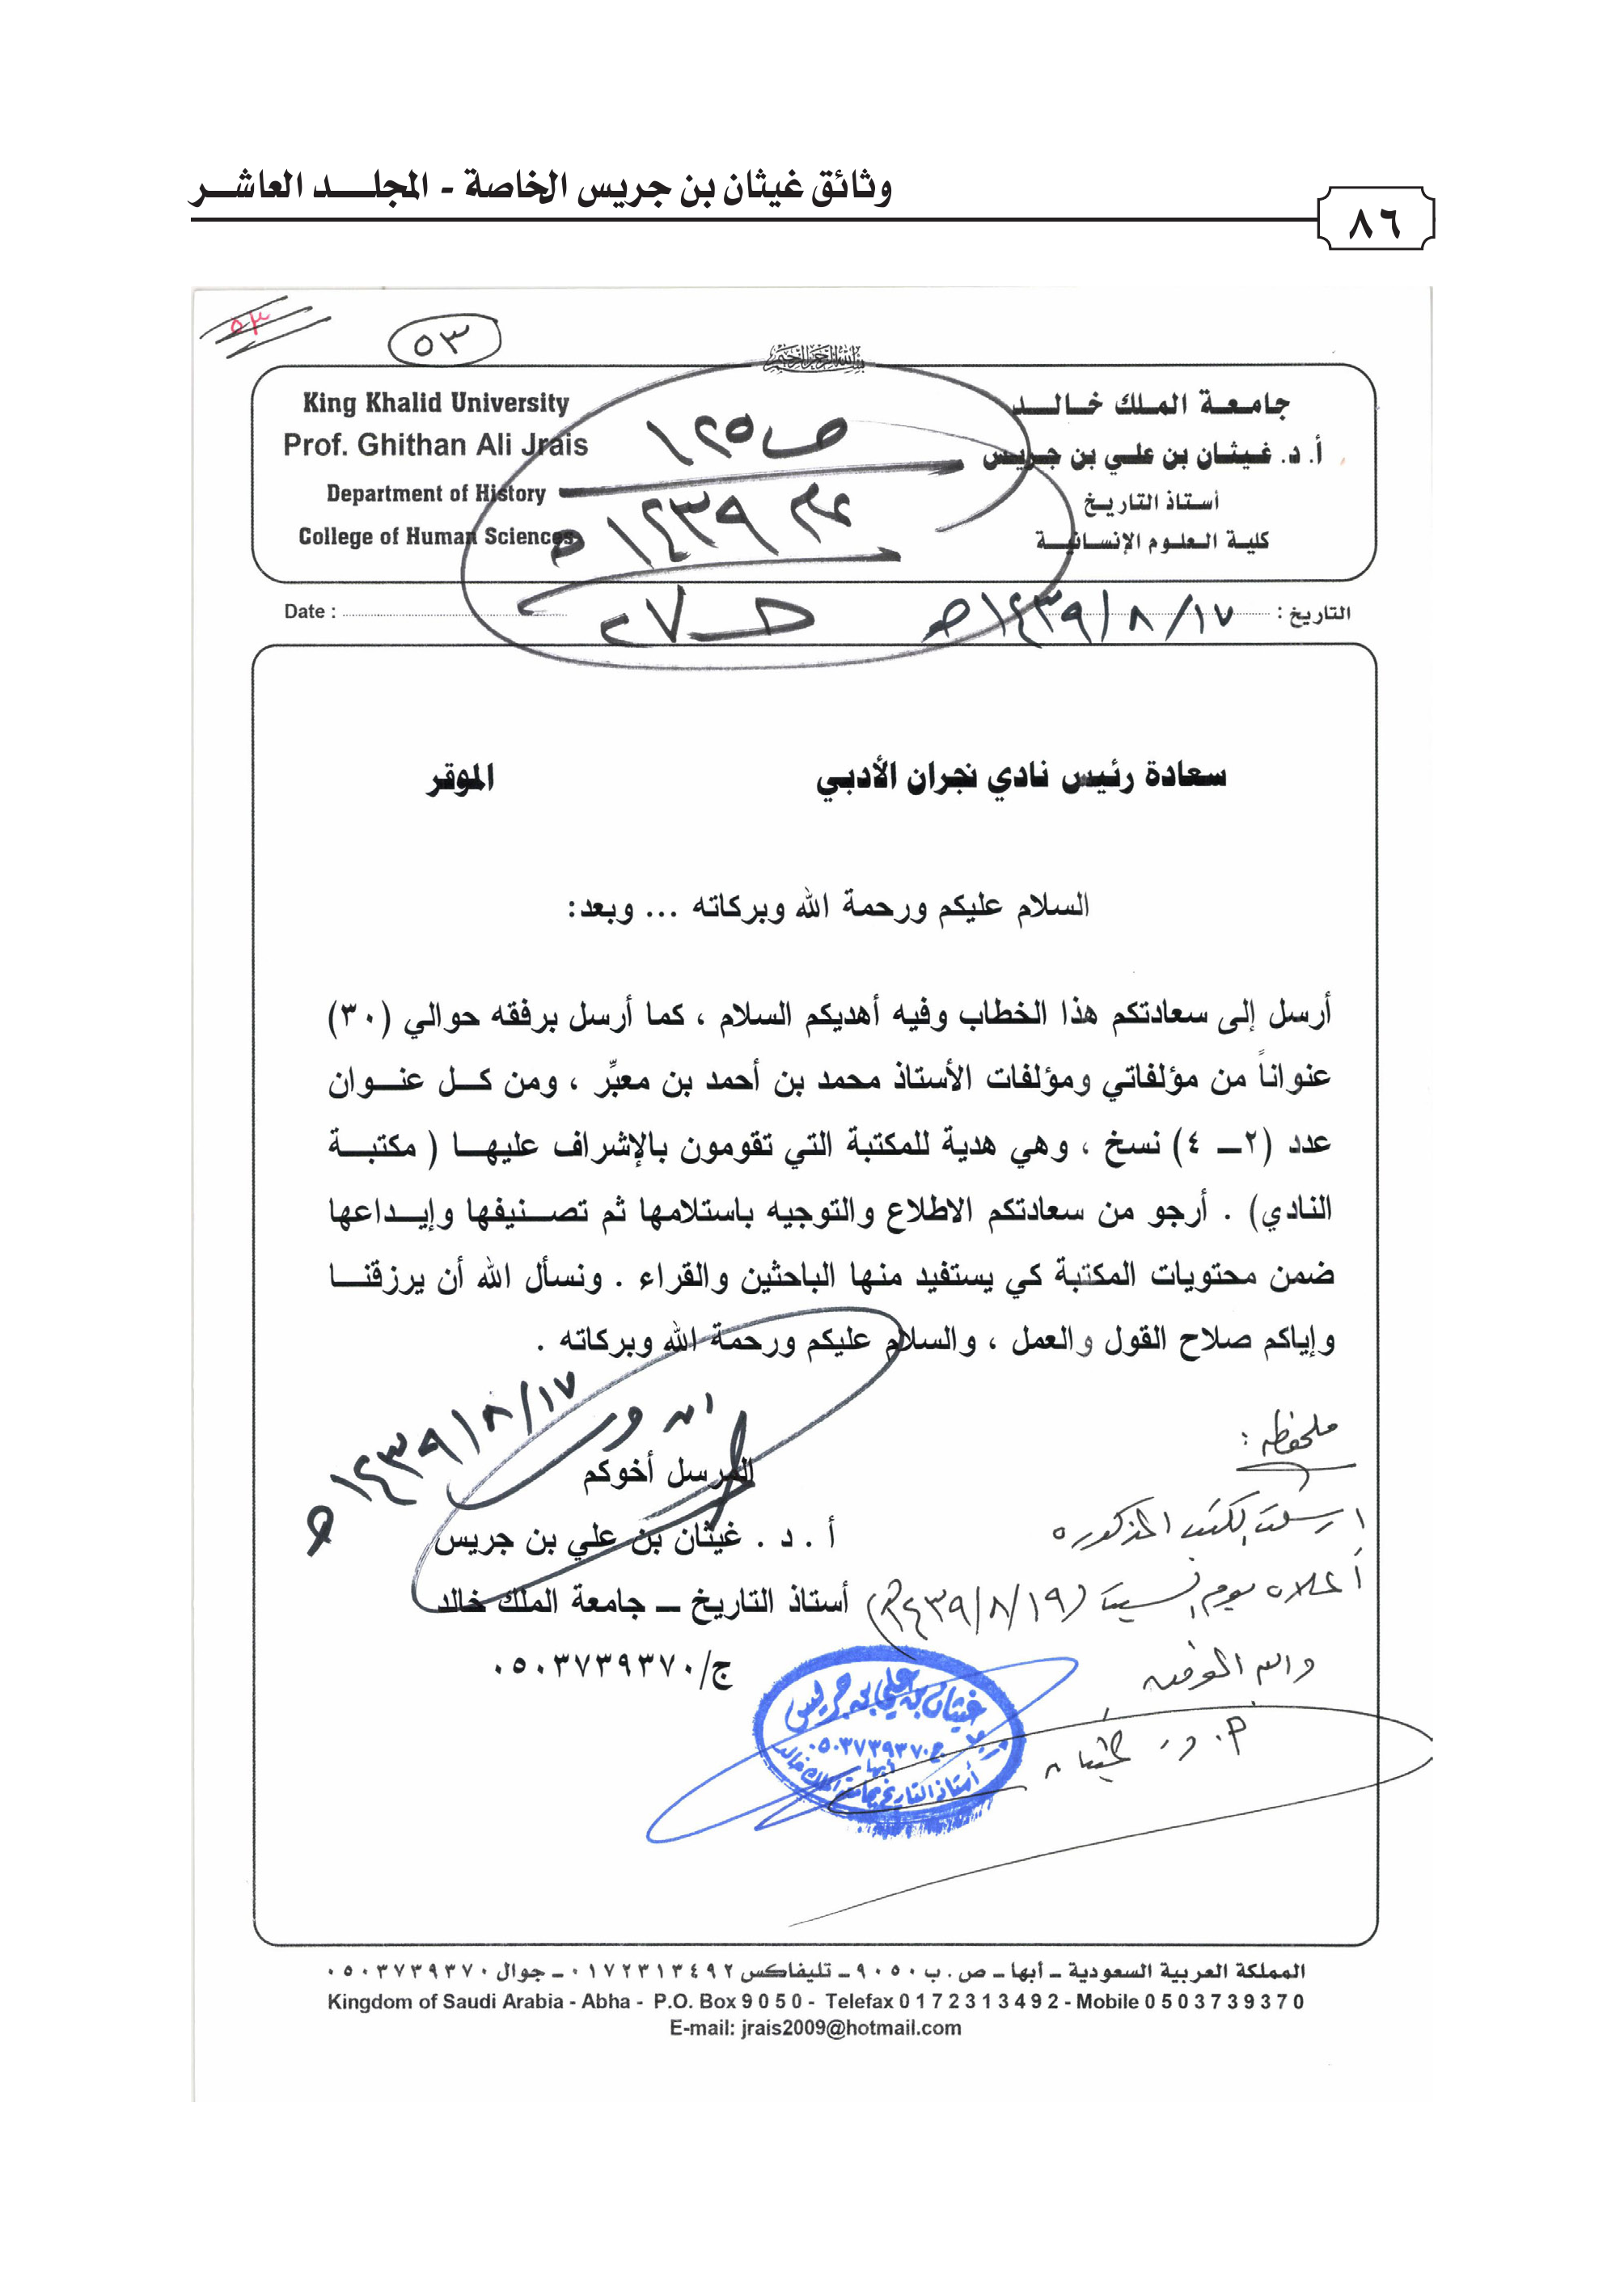 وثائق غيثان بن جريس الخاصة - المجلـــد العاشـــر
٨٦
٥٣
٥٣
بسم الله الرحمن الرحيم
جامعة الملك خالد
أ. د. غيثان بن علي بن جريس
أستاذ التاريخ
كلية العلوم الإنسانية
King Khalid University
Prof. Ghithan Ali Jrais
Department of History
College of Human Sciences
ص ١٢٥
عام ١٤٣٩هـ
التاريخ : ١٧/ ٨ /١٤٣٩هـ
Date :
سعادة رئيس نادي نجران الأدبي الموقر
السلام عليكم ورحمة الله وبركاته ... وبعد:
أرسل إلى سعادتكم هذا الخطاب وفيه أهديكم السلام ، كما أرسل برفقه حوالي (٣٠)
عنواناً من مؤلفاتي ومؤلفات الأستاذ محمد بن أحمد بن معبِّر ، ومن كل عنوان
عدد (٢ــ ٤) نسخ ، وهي هدية للمكتبة التي تقومون بالإشراف عليها ( مكتبة
النادي) . أرجو من سعادتكم الاطلاع والتوجيه باستلامها ثم تصنيفها وإيداعها
ضمن محتويات المكتبة كي يستفيد منها الباحثين والقراء . ونسأل الله أن يرزقنا
وإياكم صلاح القول والعمل ، والسلام عليكم ورحمة الله وبركاته .
١٧/ ٨ /١٤٣٩هـ
المرسل أخوكم
أ . د . غيثان بن علي بن جريس
أستاذ التاريخ ــ جامعة الملك خالد
ج/٠٥٠٣٧٣٩٣٧٠
ملحوظه :
ارسلت الكتب المذكوره
أعلاه يوم السبت (١٩/ ٨ /١٤٣٩هـ)
والله الموفق
أ. د. غيثان
غيثان بن علي بن جريس
ج٠٥٠٣٧٣٩٣٧٠
أبها
أستاذ التاريخ بجامعة الملك خالد
المملكة العربية السعودية ــ أبها ــ ص . ب ٩٠٥٠ ــ تليفاكس ٠١٧٢٣١٣٤٩٢ ــ جوال ٠٥٠٣٧٣٩٣٧٠
Kingdom of Saudi Arabia - Abha - P.O. Box 9 0 5 0 - Telefax 0 1 7 2 3 1 3 4 9 2 - Mobile 0 5 0 3 7 3 9 3 7 0
E-mail: jrais2009@hotmail.com